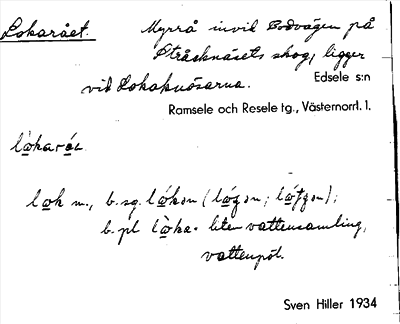 Lokarået.
Myrrå invid Bodvägen på
Stråsknäsets skog, ligger
vid Lokaknösarna.
Edsele s:n
Ramsele och Resele tg., Västernorrl. l.
lò̱karó̱ɛ
lo̱k m., b.sg. ló̱kɘn (ló̱gɘn; ló̱fgɘn);
b. pl lò̱ka. liten vattensamling,
vattenpöl.
Sven Hiller 1934